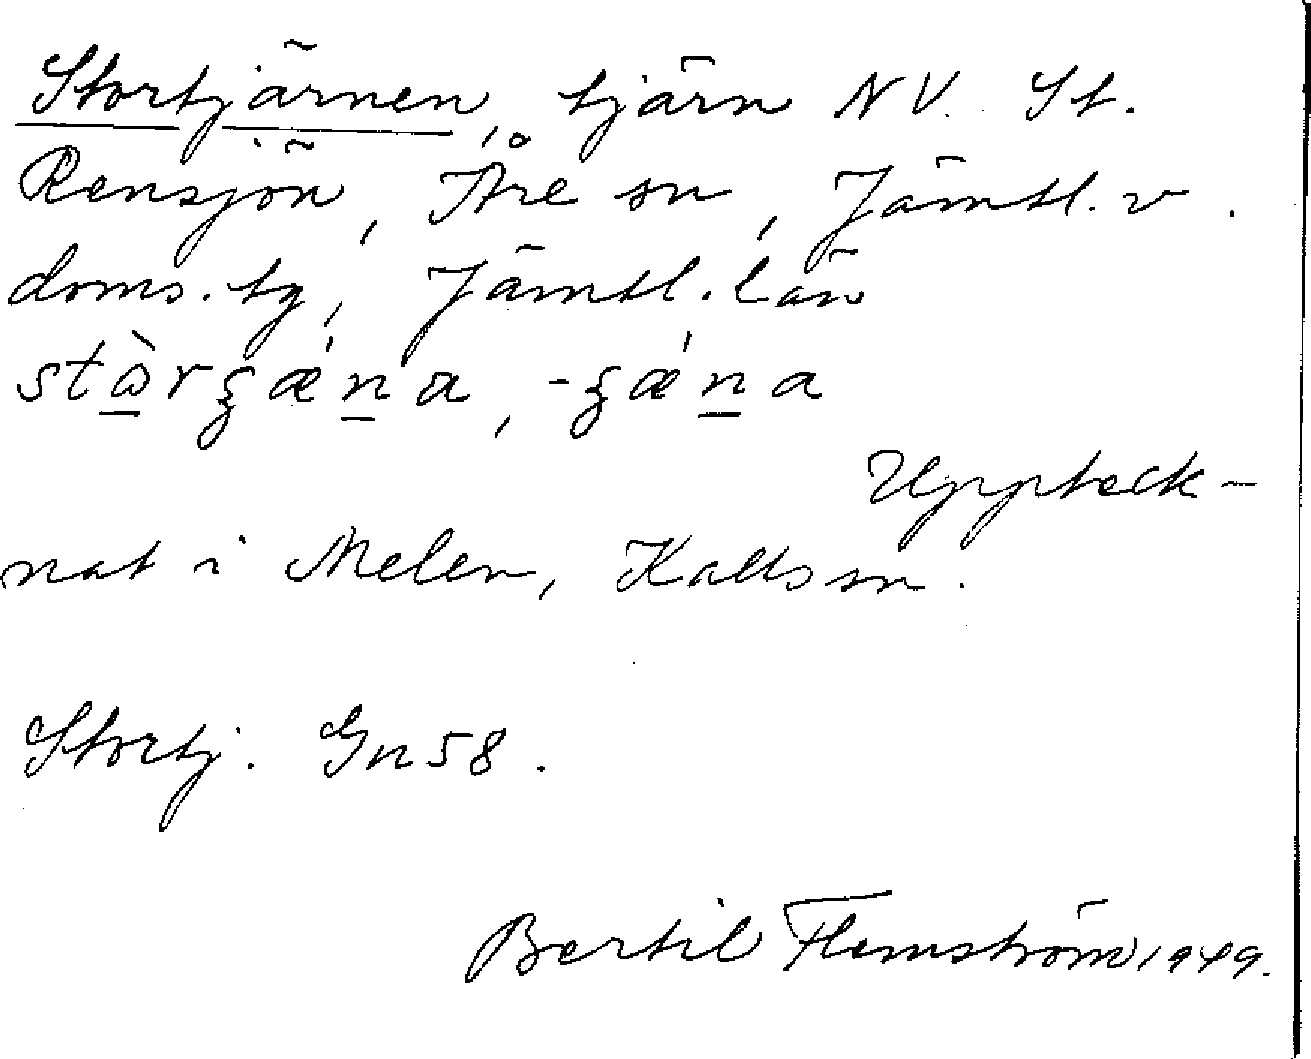 Stortjärnen, tjärn NV. St.
Rensjön, Åre sn, Jämtl. v.
doms. tg, Jämtl. län
Uppteck-
nat i Melen, Kalls sn.
Stortj. Gn 58.
Bertil Flemström 1949.